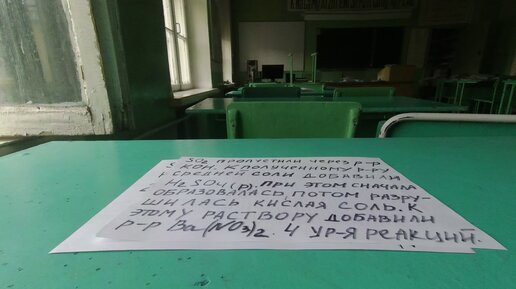 SO₂ ПРОПУСТИЛИ ЧЕРЕЗ Р-Р
КОН. К ПОЛУЧЕННОМУ Р-РУ
СРЕДНЕЙ СОЛИ ДОБАВИЛИ
H₂SO₄(р). ПРИ ЭТОМ СНАЧАЛА
ОБРАЗОВАЛАСЬ, ПОТОМ РАЗРУ-
ШИЛАСЬ КИСЛАЯ СОЛЬ. К
ЭТОМУ РАСТВОРУ ДОБАВИЛИ
Р-Р Ba(NO₃)₂. 4 УР-Я РЕАКЦИЙ.